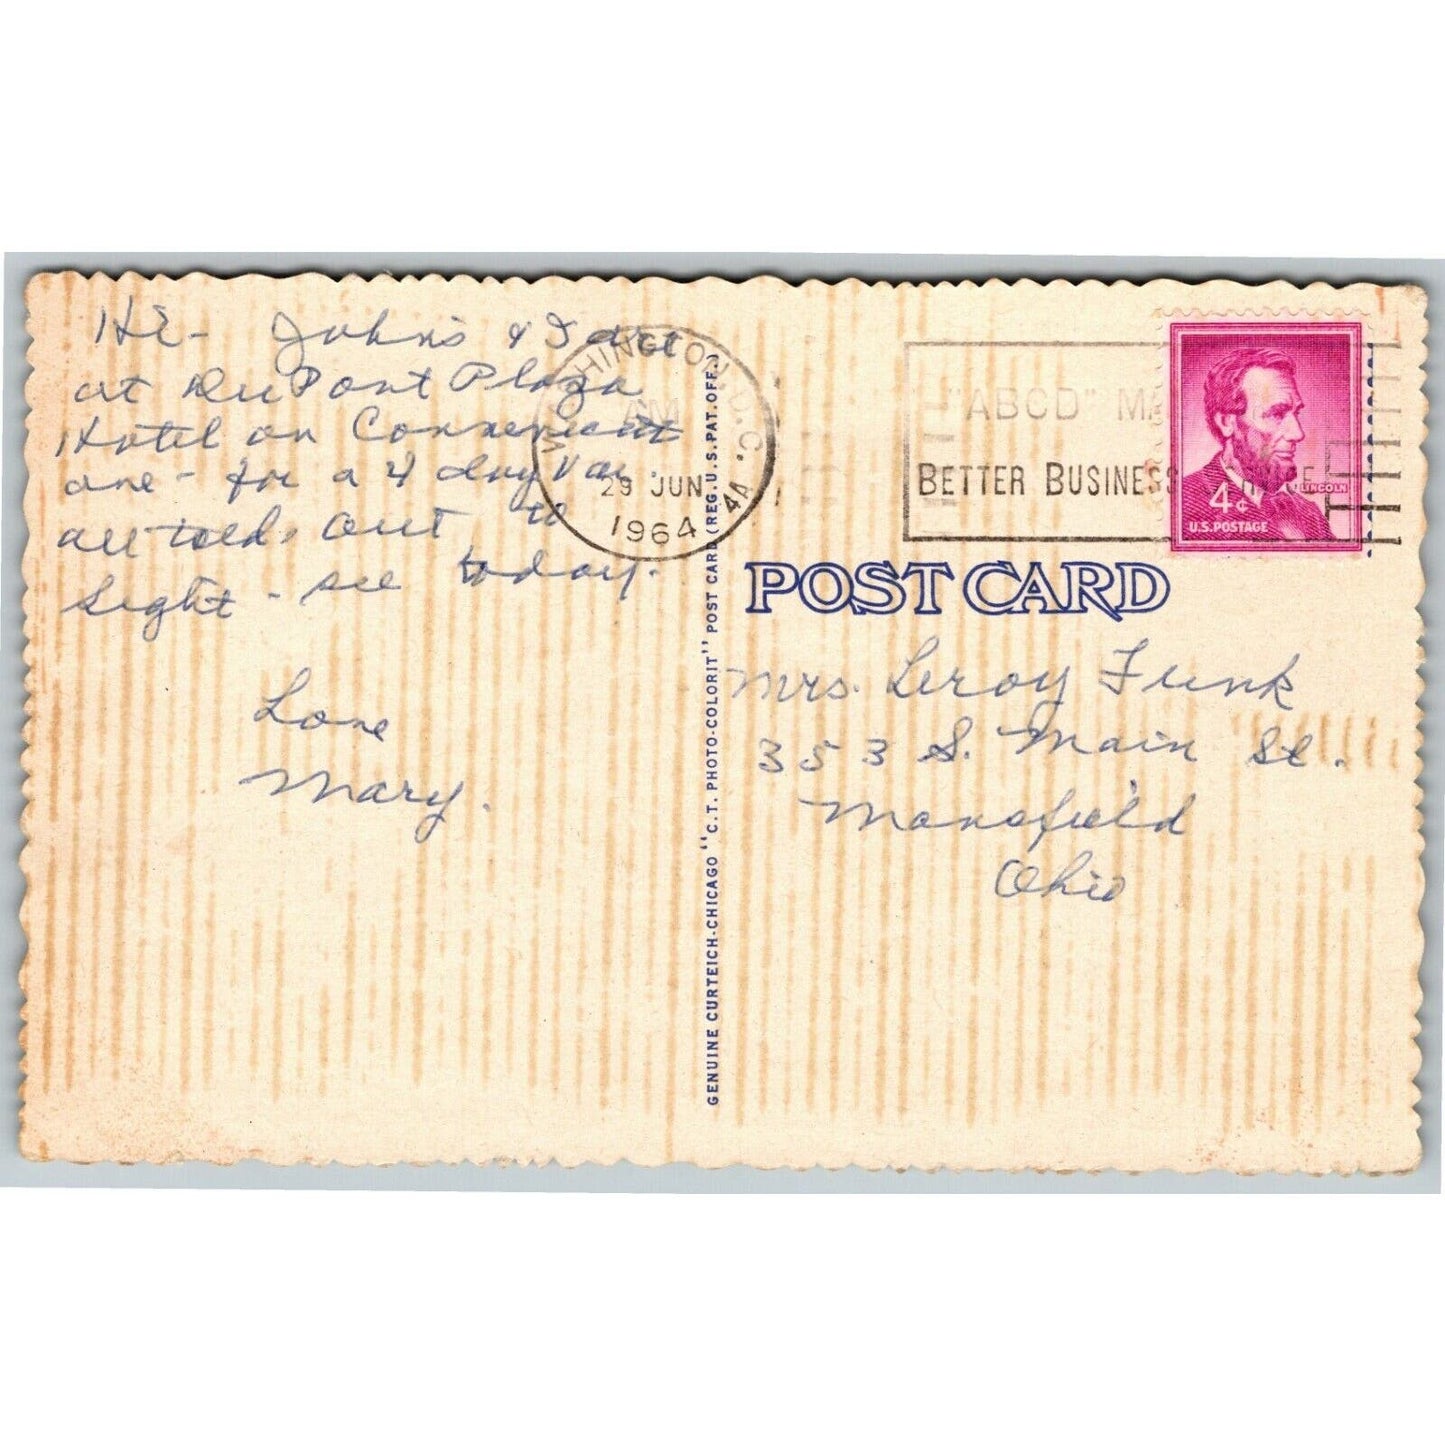 Hi - John's & I are
at DuPont Plaza
Hotel on Connecticut
ave - for a 4 day Vac.
all told, out to
sight - see today.
Love
Mary.
WASHINGTON, D.C.
AM
29 JUN
1964
4A
"ABCD"
BETTER BUSINESS
LINCOLN
4¢
U.S. POSTAGE
POST CARD
Mrs. Leroy Funk
353 S. Main St.
Mansfield
Ohio
GENUINE CURTEICH-CHICAGO "C.T. PHOTO-COLORIT" POST CARD (REG. U.S. PAT. OFF.)